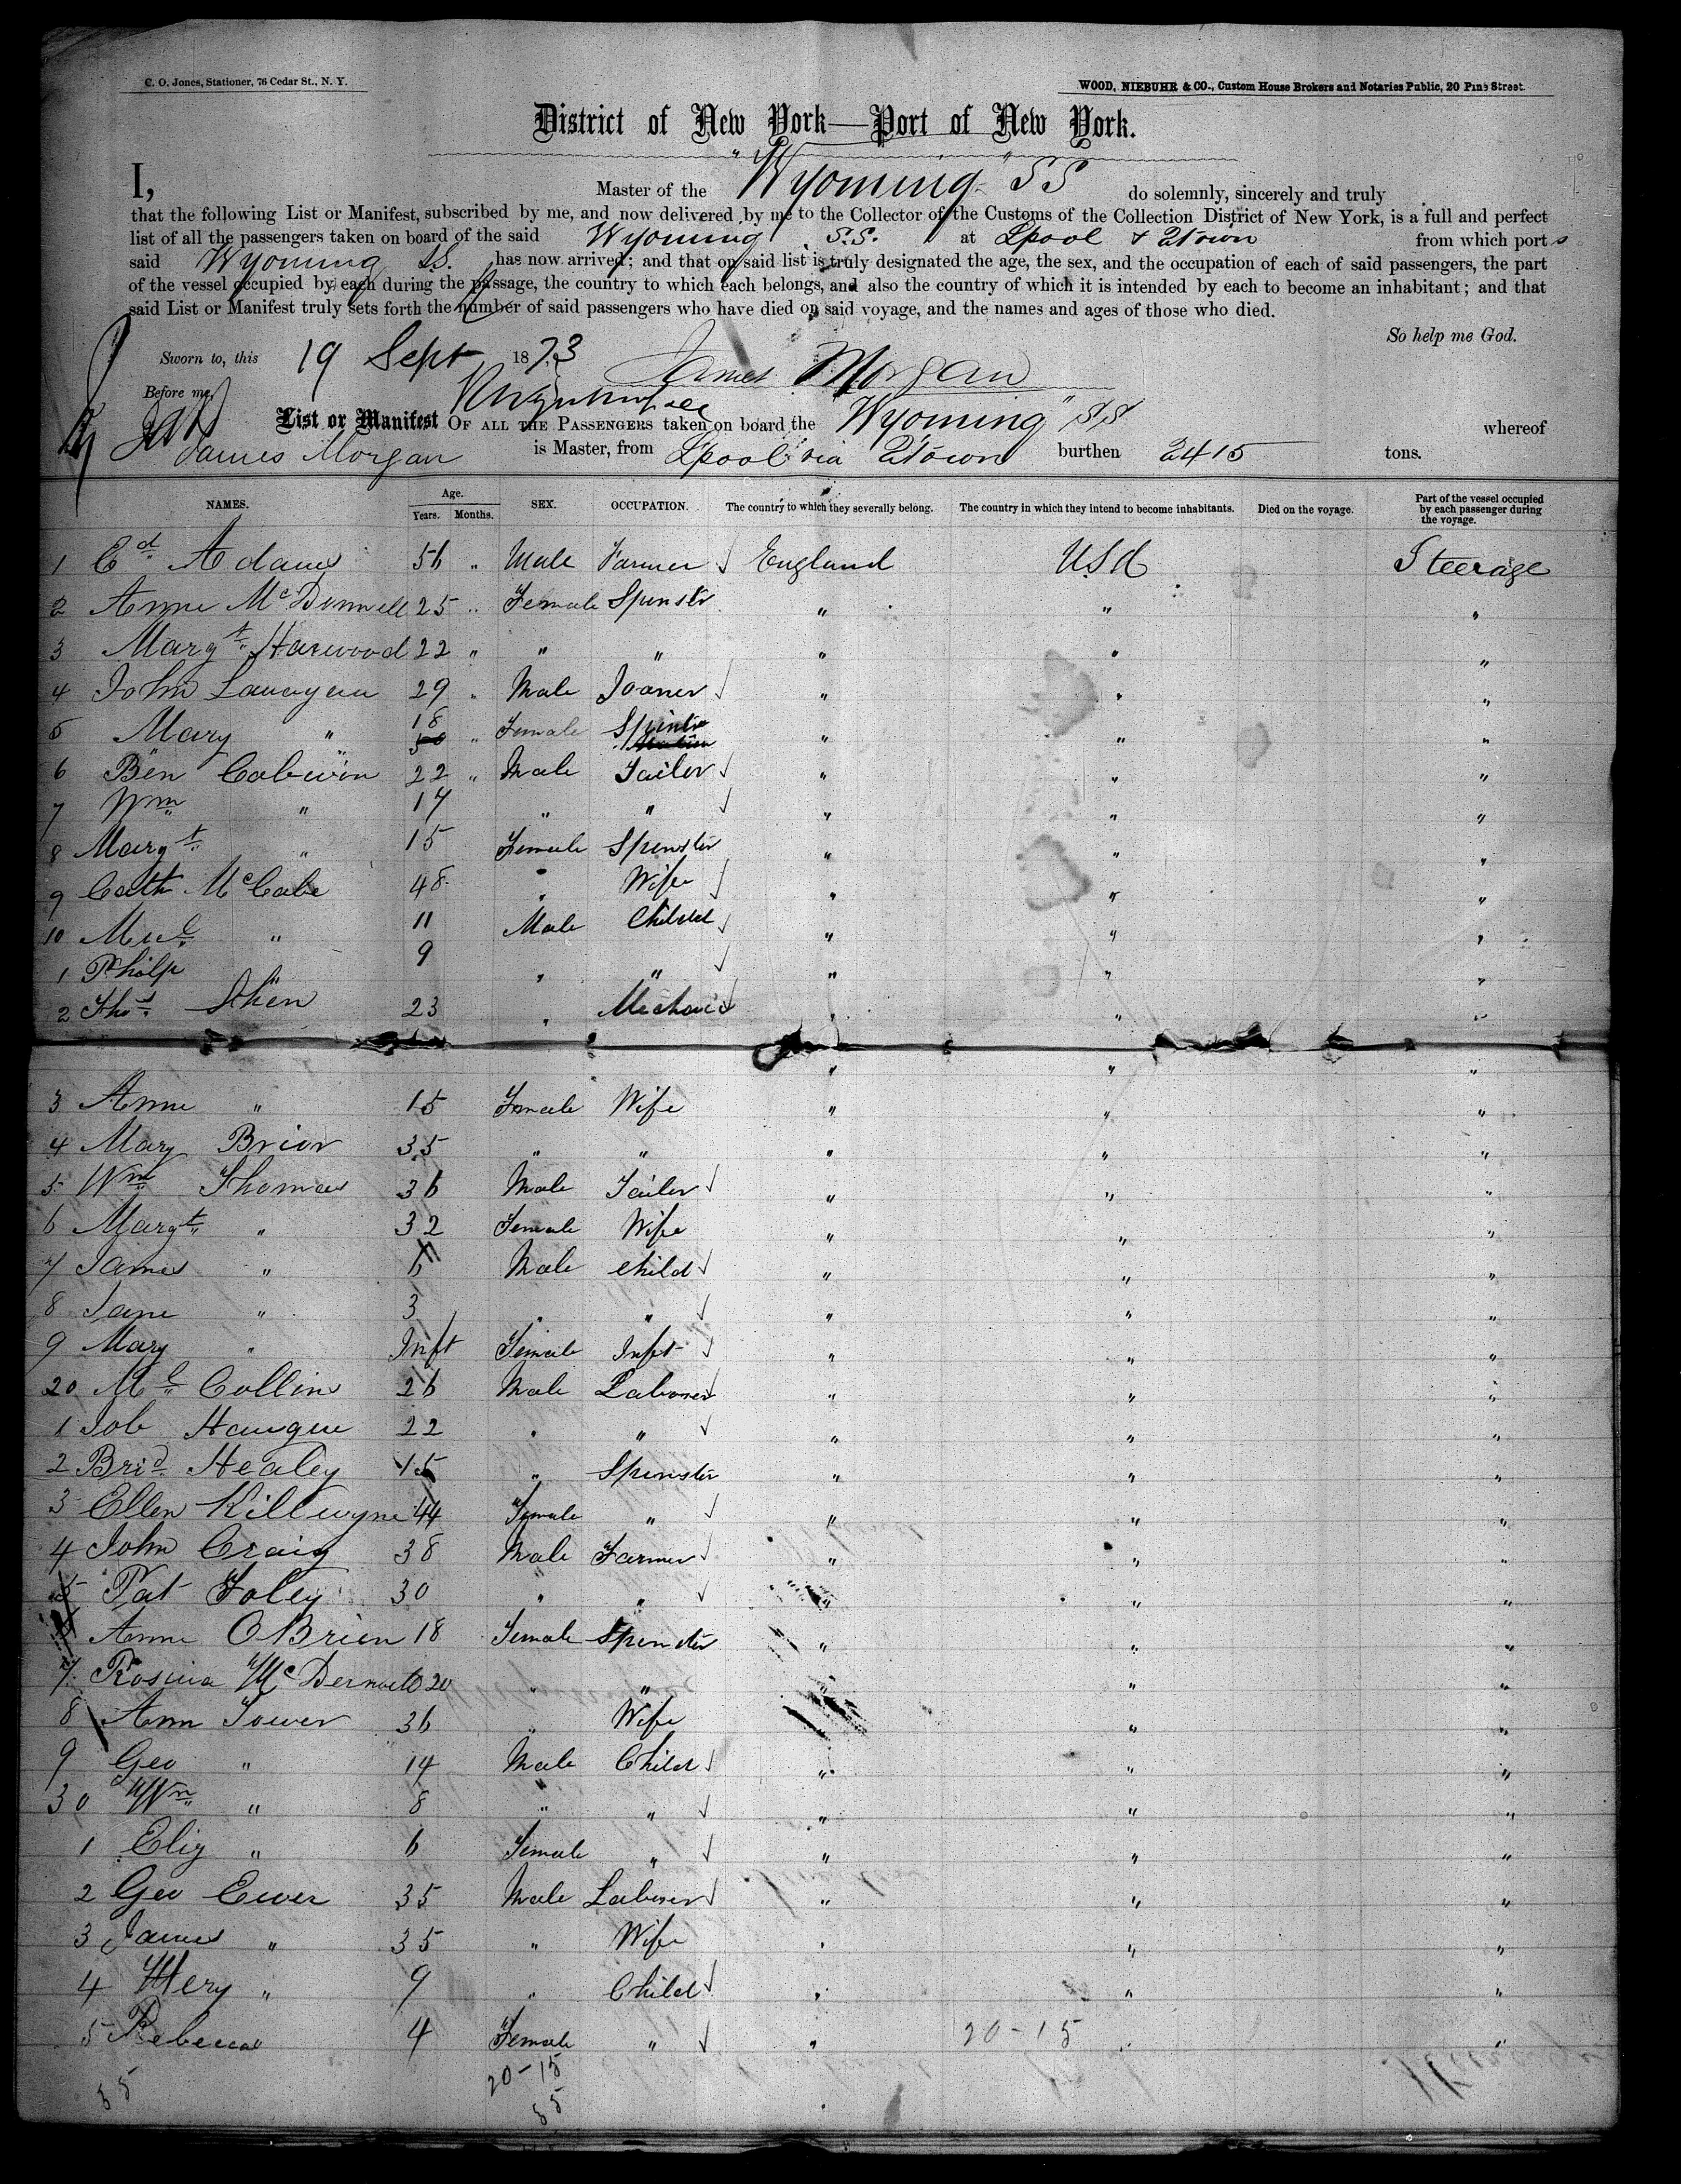 C. O. Jones, Stationer, 76 Cedar St., N. Y.
WOOD, NIEBUHR & CO., Custom House Brokers and Notaries Public, 20 Pine Street.
District of New York—Port of New York.
I, Master of the "Wyoming" SS do solemnly, sincerely and truly
that the following List or Manifest, subscribed by me, and now delivered by me to the Collector of the Customs of the Collection District of New York, is a full and perfect
list of all the passengers taken on board of the said Wyoming S.S. at Lpool & Qtown from which ports
said Wyoming S.S. has now arrived; and that on said list is truly designated the age, the sex, and the occupation of each of said passengers, the part
of the vessel occupied by each during the passage, the country to which each belongs, and also the country of which it is intended by each to become an inhabitant; and that
said List or Manifest truly sets forth the number of said passengers who have died on said voyage, and the names and ages of those who died.
So help me God.
Sworn to, this 19 Sept 1873 James Morgan
Before me,
List or Manifest OF ALL THE PASSENGERS taken on board the "Wyoming" SS whereof
James Morgan is Master, from Lpool via Qtown burthen 2415 tons.
NAMES. Age. Years. Months. SEX. OCCUPATION. The country to which they severally belong. The country in which they intend to become inhabitants. Died on the voyage. Part of the vessel occupied by each passenger during the voyage.
1 Ed Adams 56 " Male Farmer England USA Steerage
2 Anne McDonnell 25 " Female Spinstr " " "
3 Margt Harwood 22 " " " " " "
4 John 29 " Male Joaner " " "
5 Mary " 18 " Female Spinstr " " "
6 Ben 22 " Male Tailor " " "
7 Wm " 14 " " " " "
8 Margt " 15 Female Spinster " " "
9 Cath McCabe 48 " Wife " " "
10 Micl " 11 Male Child " " "
1 Philp " 9 " " " " "
2 Thos 23 " Mechanic " " "
3 Anne " 15 Female Wife " " "
4 Mary Brior 35 " " " " "
5 Wm Thomas 36 Male Tailor " " "
6 Margt " 32 Female Wife " " "
7 James " 6 Male Child " " "
8 Jane " 3 " " " " "
9 Mary " Inft Female Inft " " "
20 Ml Collins 26 Male Laborer " " "
1 Job 22 " " " " "
2 Brid Healey 15 " Spinster " " "
3 Ellen Killwyne 44 Female " " " "
4 John Craig 38 Male Farmer " " "
5 Pat Foley 30 " " " " "
Anne OBrien 18 Female Spinster " " "
7 Rosina McDermott 20 " " " " "
8 Ann Tower 36 " Wife " " "
9 Geo " 14 Male Child " " "
30 Wm " 8 " " " " "
1 Eliz " 6 Female " " " "
2 Geo Ewer 35 Male Laborer " " "
3 James " 35 " Wife " " "
4 Hery " 9 " Child " " "
5 Rebecca 4 Female " " 20-15 " "
35 20-15
35